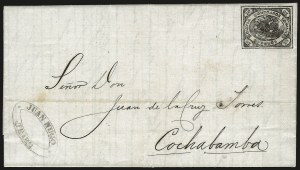 Señor Don
Juan de la Cruz Torres.
Cochabamba
JUAN MUÑOZ